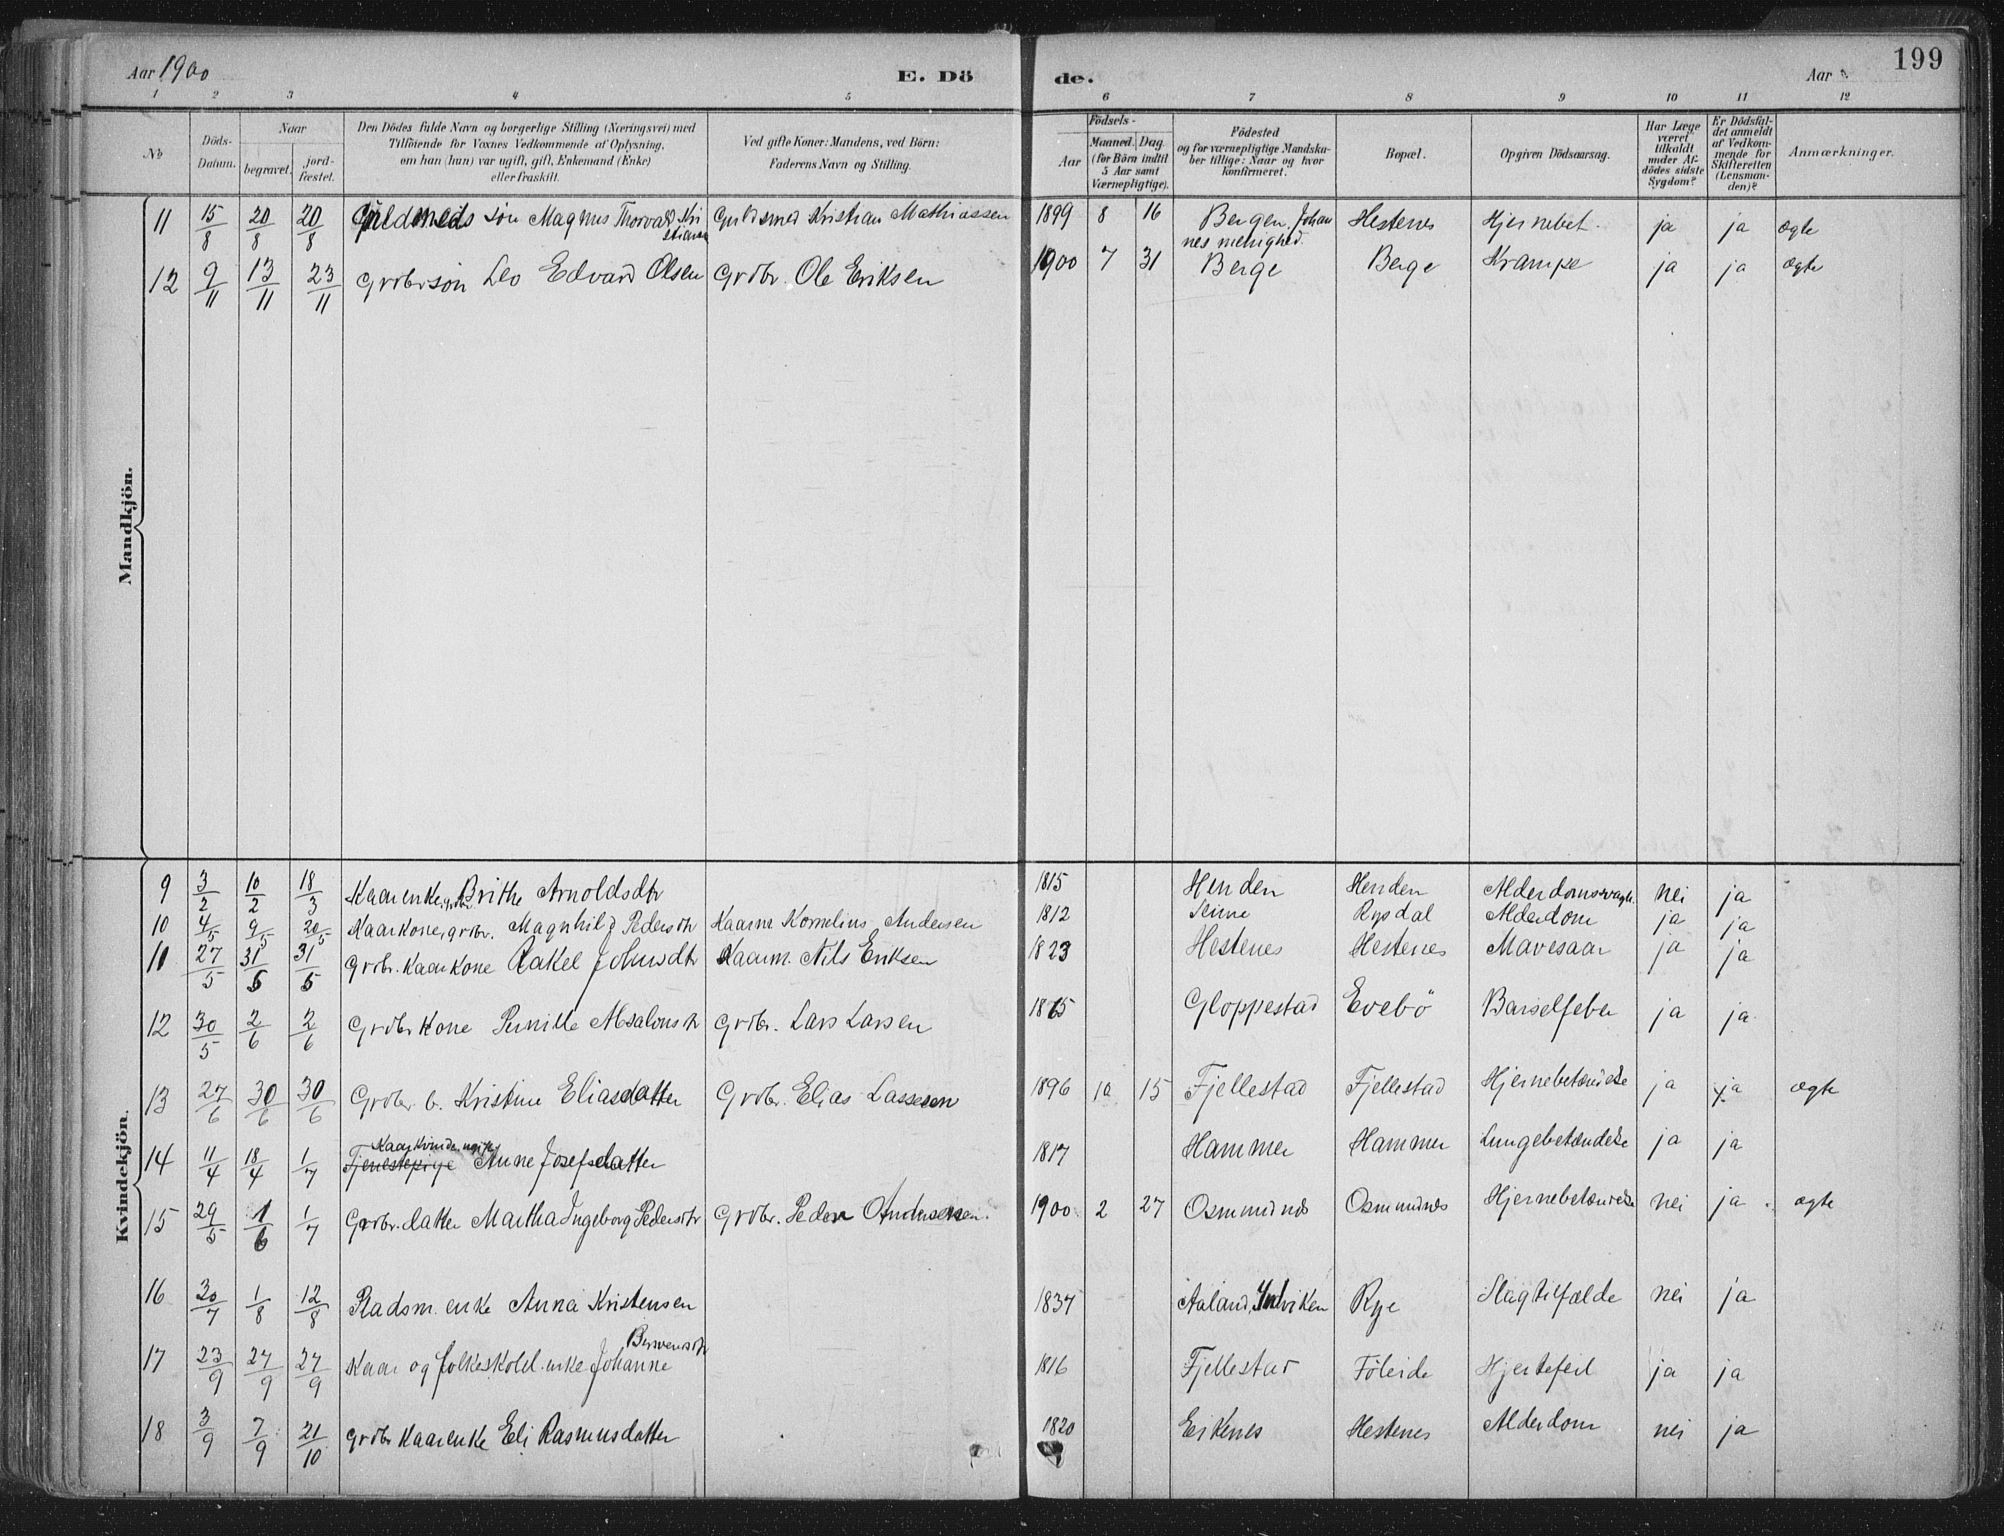 Aar 1900 E. Döde. Aar 199
1 2 3 4 5 6 7 8 9 10 11 12
№ Döds-Datum. Naar begravet. jord-fæstet. Den Dödes fulde Navn og borgerlige Stilling (Næringsvei) med Tilföiende for Voxnes Vedkommende af Oplysning, om han (hun) var ugift, gift, Enkemand (Enke) eller fraskilt. Ved gifte Koner: Mandens, ved Börn: Faderens Navn og Stilling. Födsels- Aar Maaned. Dag. (for Börn indtil 5 Aar samt Værnepligtige). Födested og for værnepligtige Mandskaber tillige: Naar og hvor konfirmeret. Bopæl. Opgiven Dödsaarsag. Har Læge været tilkaldt under Afdödes sidste Sygdom? Er Dödsfaldet anmeldt af Vedkommende for Skifteretten (Lensmanden)? Anmærkninger.
Mandkjön.
11 15/8 20/8 20/8 Guldsmeds søn Magnus Thorvald Kristiansen Guldsmed Kristian Mathiassen 1899 8 16 Bergen, Johannes menighed. Hestenes Hjernebet. ja ja ægte
12 9/11 13/11 23/11 Grdbr søn Leo Edvard Olsen Grdbr. Ole Eriksen 1900 7 31 Berge Berge Krampe ja ja ægte
Kvindekjön.
9 3/2 10/2 18/3 Kaarenke, grdbr. Brithe Arnoldsdtr 1815 Henden Henden Alderdomssvagh. nei ja
10 4/5 9/5 20/5 Kaarkone, grdbr. Magnhild Pedersdtr Kaarm Kornelius Andersen 1812 Seime Rygdal Alderdom ja ja
11 27/5 31/5 31/5 Grdbr. Kaarkone Rakel Johnsdtr Kaarm. Nils Eriksen 1823 Hestenes Hestenes Mavesaar ja ja
12 30/5 2/6 2/6 Grdbr Kone Pernille Absalonsdtr Grdbr. Lars Larsen 1865 Gloppestad Evebø Barselfeber ja ja
13 27/6 30/6 30/6 Grdbr. b. Kristine Eliasdatter Grdbr. Elias Lassesen 1896 10 15 Fjellestad Fjellestad Hjernebetændelse ja ja ægte
Kaarkvinde, ugift
14 11/4 18/4 1/7 Tjenestepige Anne Josefsdatter 1817 Hammer Hammer Lungebetændelse ja ja
15 29/5 1/6 1/7 Grdbr. datter Martha Ingeborg Pedersdtr Grdbr. Peder Andersen. 1900 2 27 Osmundnes Osmundnes Hjernebetændelse nei ja ægte
16 30/7 1/8 12/8 Pladsm. enke Anna Kristensen 1837 Aaland, Indviken Rye Slagtilfælde nei ja
17 23/9 27/9 27/9 Kaar og folkeskoll. enke Johanne 1816 Fjellestad Føleide Hjertefeil ja ja
18 3/9 7/9 21/10 Grdbr Kaarenke Eli Rasmusdatter 1820 Eikenes Hestenes Alderdom nei ja